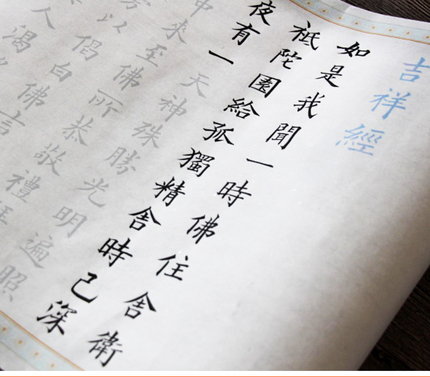 吉祥經
如是我聞一時佛住舍衛
祗陀園給孤獨精舍時己深
夜有一天神殊勝光明遍照
中來至佛所恭敬禮
以偈白佛言
人渴